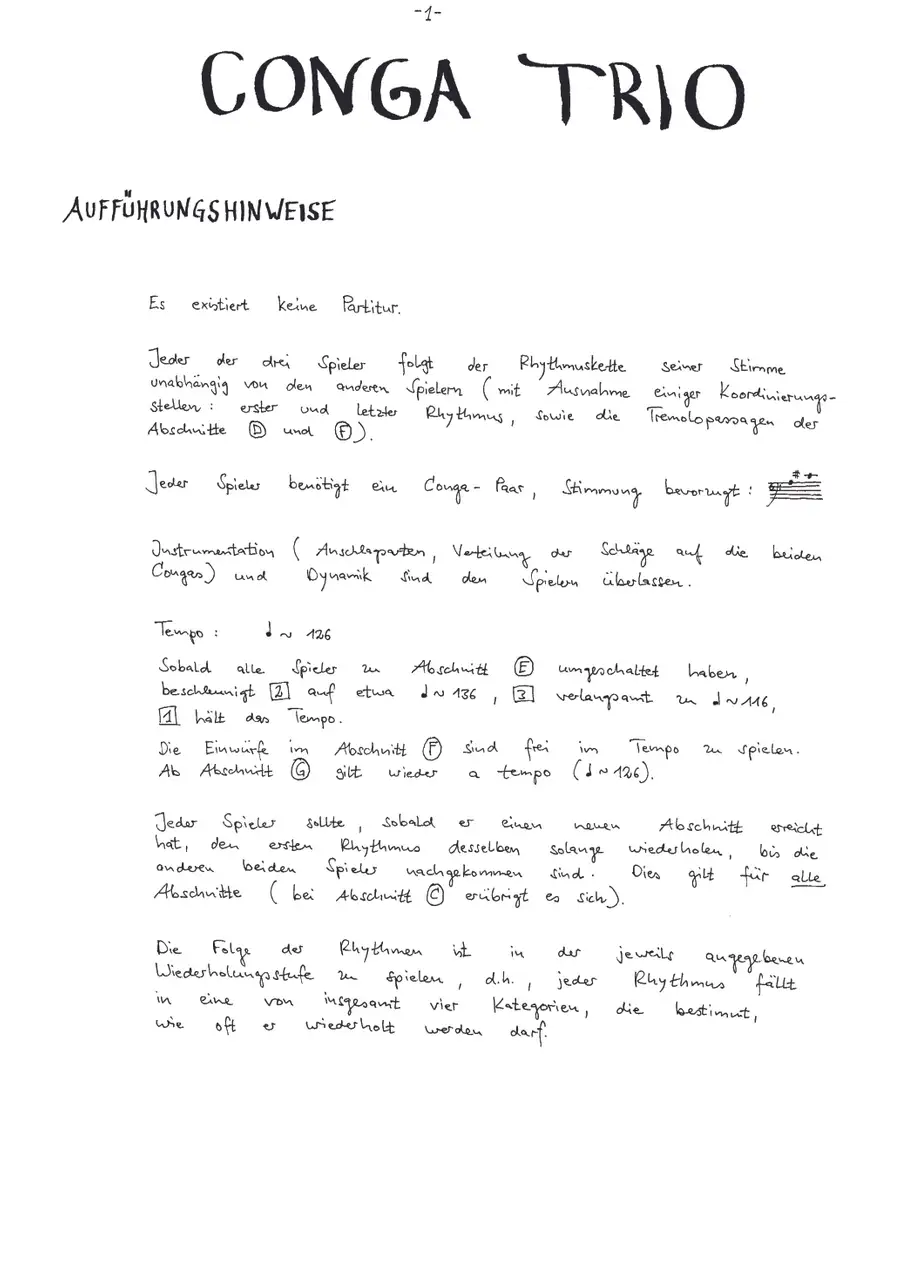 -1-
CONGA TRIO
AUFFÜHRUNGSHINWEISE
Es existiert keine Partitur.
Jeder der drei Spieler folgt der Rhythmuskette seiner Stimme
unabhängig von den anderen Spielern (mit Ausnahme einiger Koordinierungs-
stellen: erster und letzter Rhythmus, sowie die Tremolopassagen der
Abschnitte Ⓓ und Ⓕ).
Jeder Spieler benötigt ein Conga-Paar, Stimmung bevorzugt:
Instrumentation (Anschlagarten, Verteilung der Schläge auf die beiden
Congas) und Dynamik sind den Spielern überlassen.
Tempo: ♩ ~ 126
Sobald alle Spieler zu Abschnitt Ⓔ umgeschaltet haben,
beschleunigt 2 auf etwa ♩ ~ 136, 3 verlangsamt zu ♩ ~ 116,
1 hält das Tempo.
Die Einwürfe im Abschnitt Ⓕ sind frei im Tempo zu spielen.
Ab Abschnitt Ⓖ gilt wieder a tempo (♩ ~ 126).
Jeder Spieler sollte, sobald er einen neuen Abschnitt erreicht
hat, den ersten Rhythmus desselben solange wiederholen, bis die
anderen beiden Spieler nachgekommen sind. Dies gilt für alle
Abschnitte (bei Abschnitt Ⓒ erübrigt es sich).
Die Folge der Rhythmen ist in der jeweils angegebenen
Wiederholungsstufe zu spielen, d.h., jeder Rhythmus fällt
in eine von insgesamt vier Kategorien, die bestimmt,
wie oft er wiederholt werden darf.